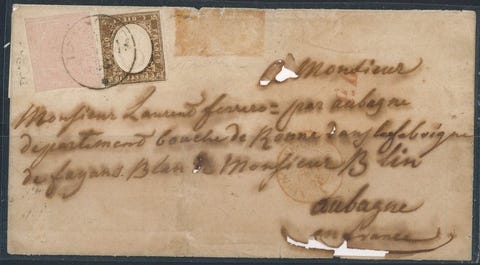 A Monsieur
Monsieur Laurent ferrero = par aubagne
departement bouche de Ronne dans
de fayans Blan Monsieur B lin
aubagne
en france